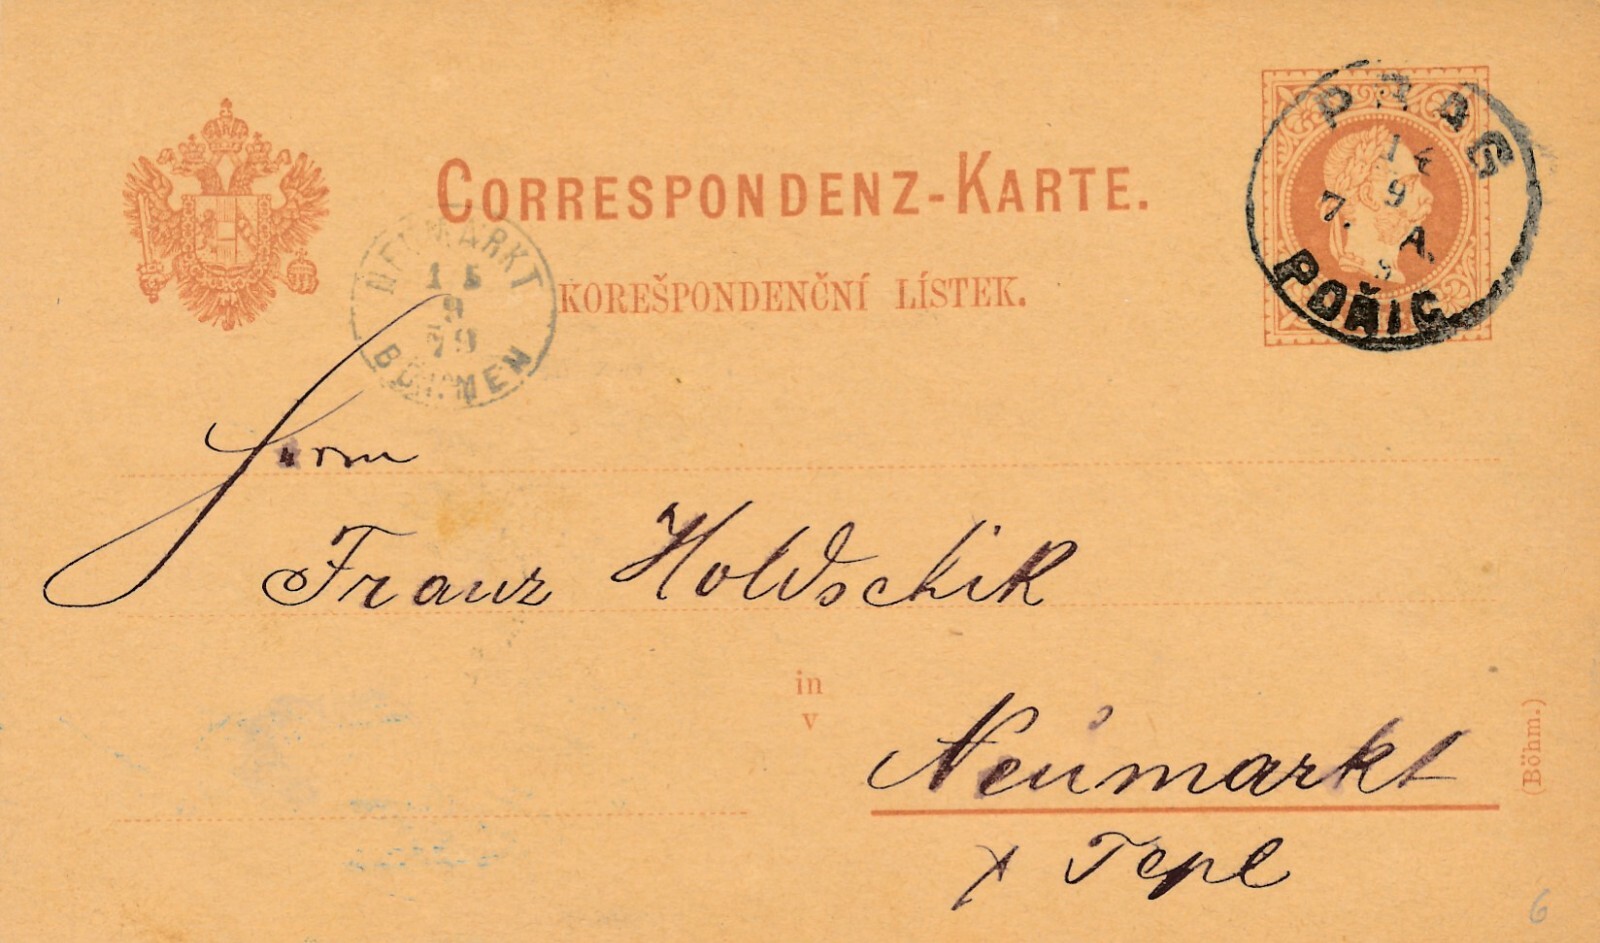 CORRESPONDENZ-KARTE.
KOREŠPONDENČNÍ LÍSTEK.
PRAG
14
9
7. A.
POŘIC
NEUMARKT
15
9
79
BÖHMEN
Herrn
Franz Holdschik
in
v
Neumarkt
Tepl
(Böhm.)
6